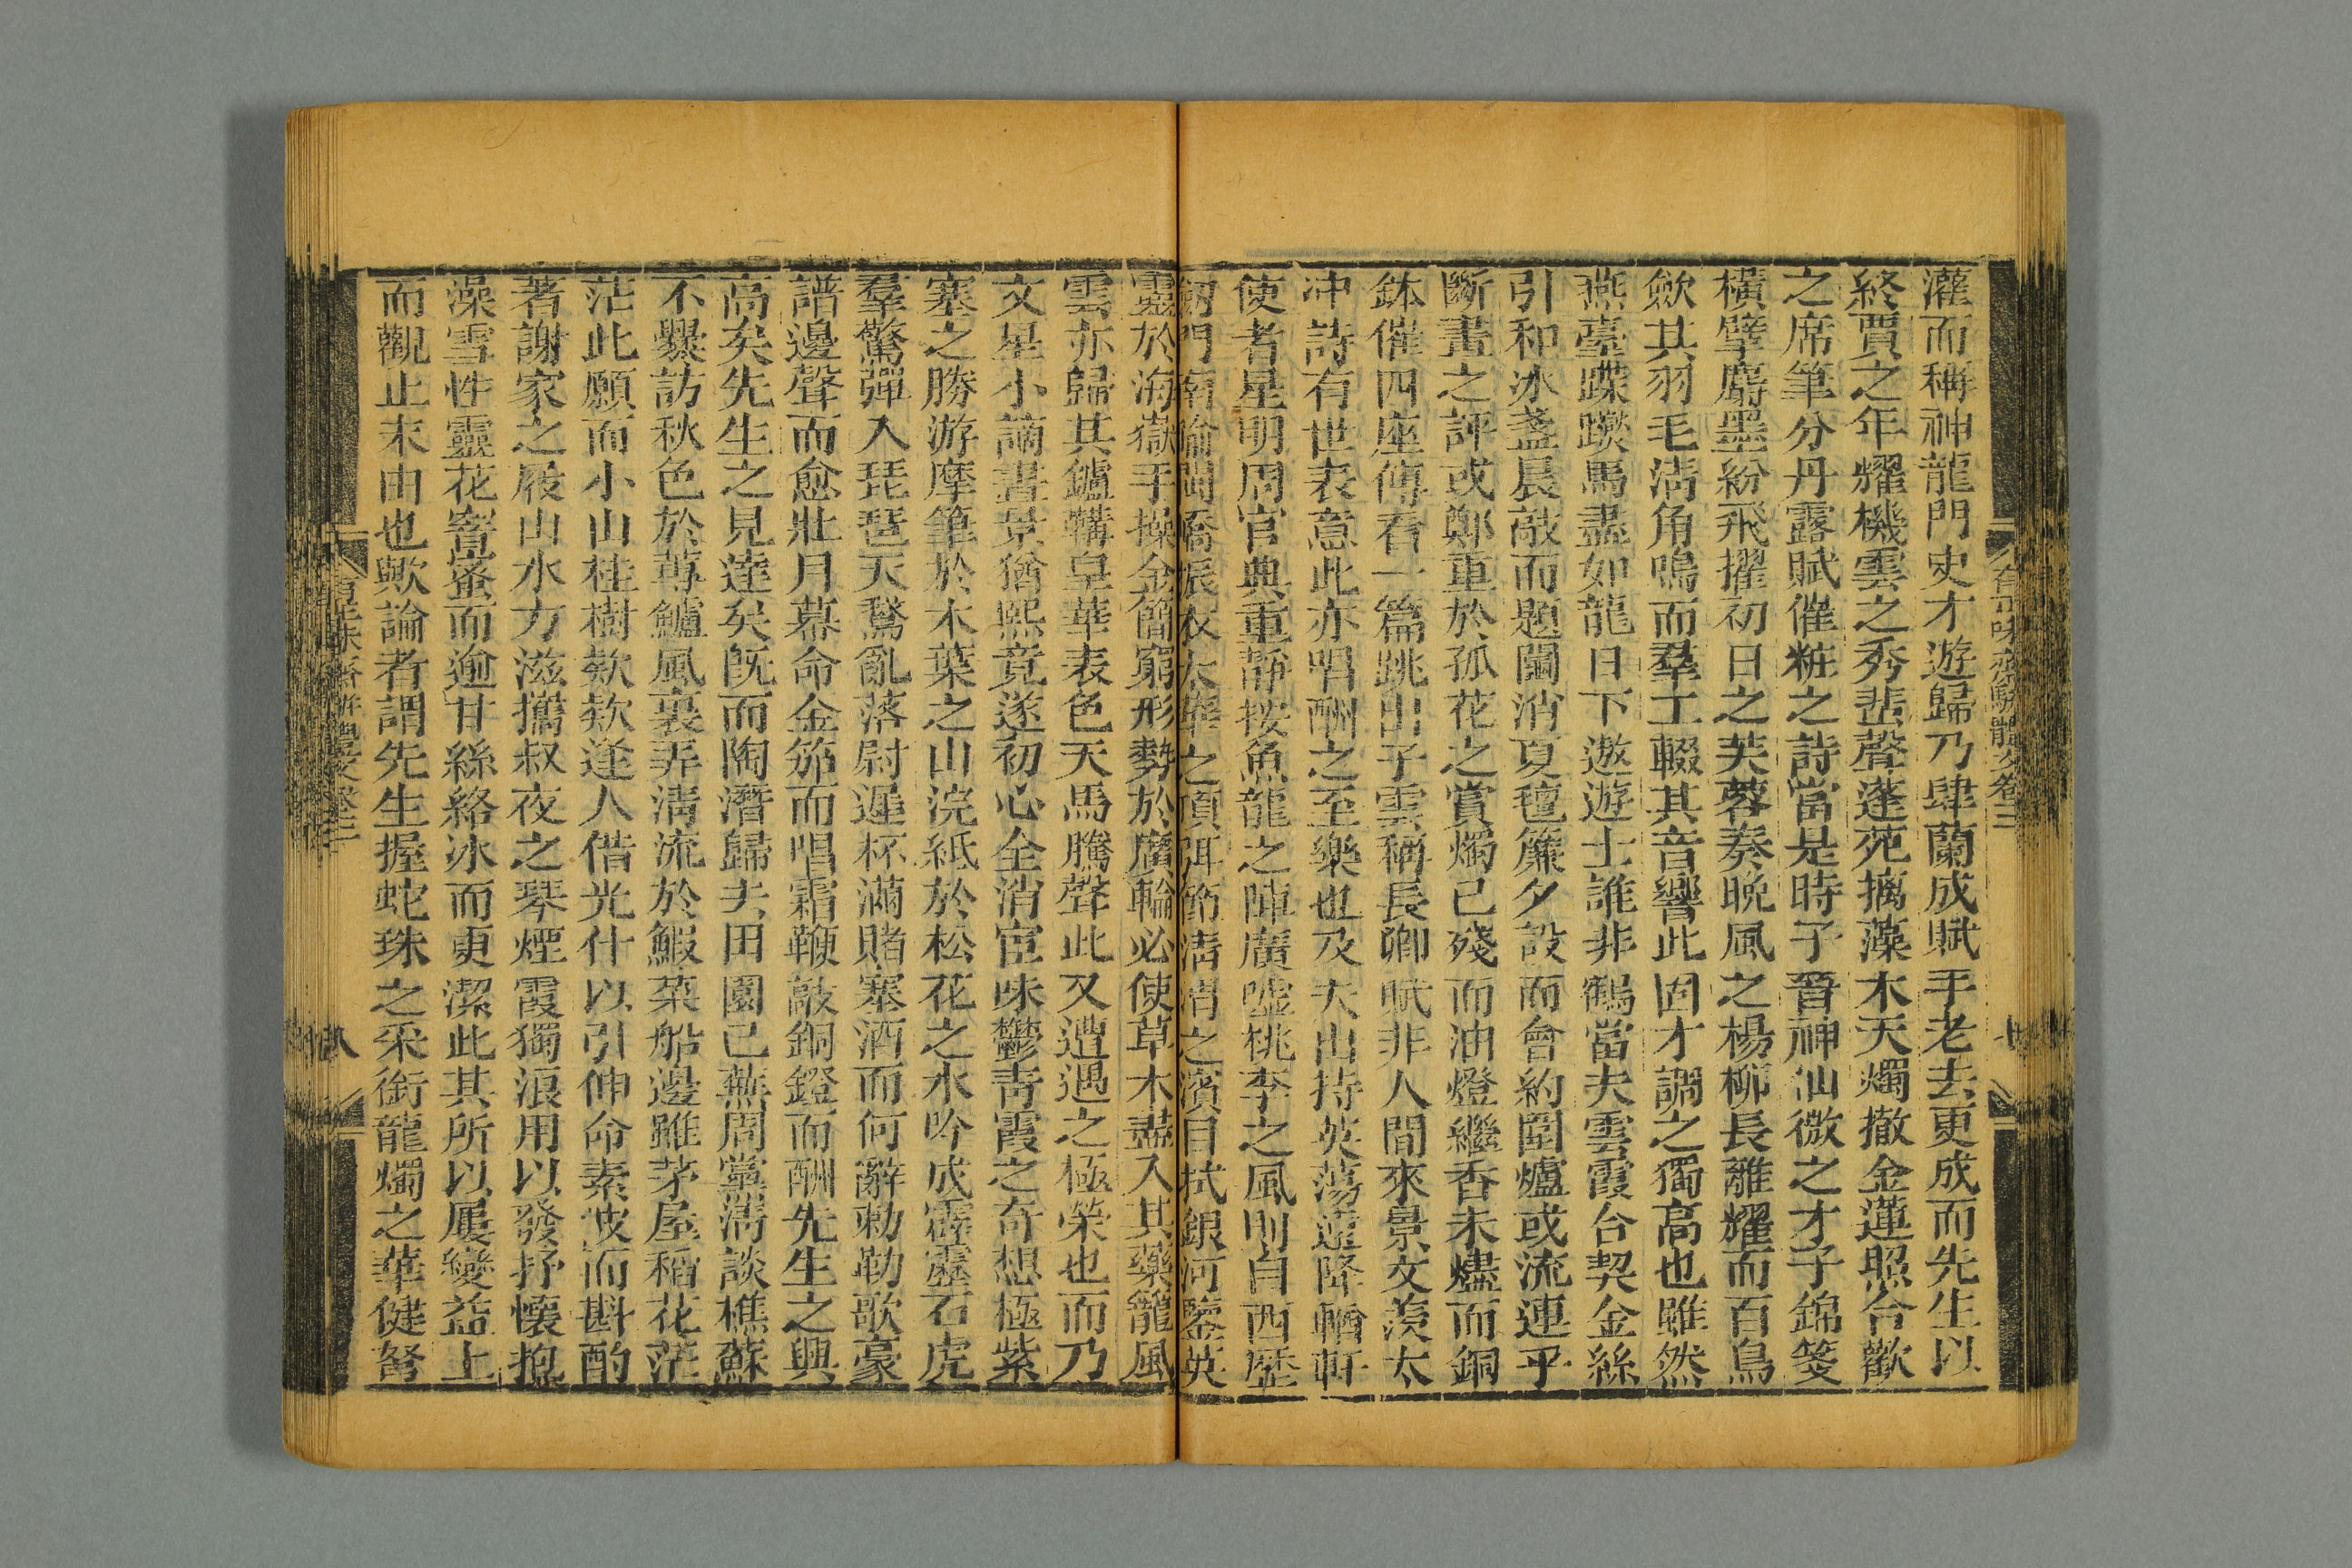 灌而稱神龍門史才遊歸乃肆蘭成賦手老去更成而先生以
終賈之年耀機雲之秀蜚聲蓬苑摛藻木天燭撤金蓮照合歡
之席筆分丹露賦催粧之詩當是時子晉神仙微之才子錦箋
橫擘麝墨紛飛擢初日之芙蓉奏晚風之楊柳長離耀而百鳥
歛其羽毛清角鳴而羣工輟其音響此固才調之獨高也雖然
燕臺蹀躞馬盡如龍日下遨遊士誰非鶴當夫雲霞合契金絲
引和冰盞晨敲而題闌消夏氊簾夕設而會約圍爐或流連乎
斷畫之評或鄭重於孤花之賞燭已殘而油燈繼香未燼而銅
鉢催四座傳看一篇跳出子雲稱長卿賦非人間來景文羨太
冲詩有世表意此亦唱酬之至樂也及夫出持英蕩遠降輶軒
使者星明周官典重靜按魚龍之陣廣噓桃李之風則自西歷
劒門南踰閩嶠振衣太華之頂弭節清渭之濱目拭銀河鑒英
靈於海嶽手操金簡窮形勢於廣輪必使草木盡入其藥籠風
雲亦歸其鑪鞲皇華表色天馬騰聲此又遭遇之極榮也而乃
文星小謫晝景猶熙竟遂初心全消宦味鬱青霞之奇想極紫
塞之勝游摩筆於木葉之山浣紙於松花之水吟成霹靂石虎
羣驚彈入琵琶天鵞亂落尉遲杯滿賭塞酒而何辭勅勒歌豪
譜邊聲而愈壯月幕命金笳而唱霜鞭敲銅鐙而酬先生之興
高矣先生之見達矣旣而陶潛歸去田園已蕪周黨清談樵蘇
不爨訪秋色於蓴鱸風裏弄清流於鰕菜船邊雖茅屋稻花茫
茫此願而小山桂樹欵欵逢人借光什以引伸命素波而斟酌
著謝家之屐山水方滋攜叔夜之琴煙霞獨浪用以發抒懷抱
澡雪性靈花窨蜜而逾甘絲絡冰而更潔此其所以屢變益上
而觀止末由也歟論者謂先生握蛇珠之采銜龍燭之華健弩
有正味齋駢體文卷三
八